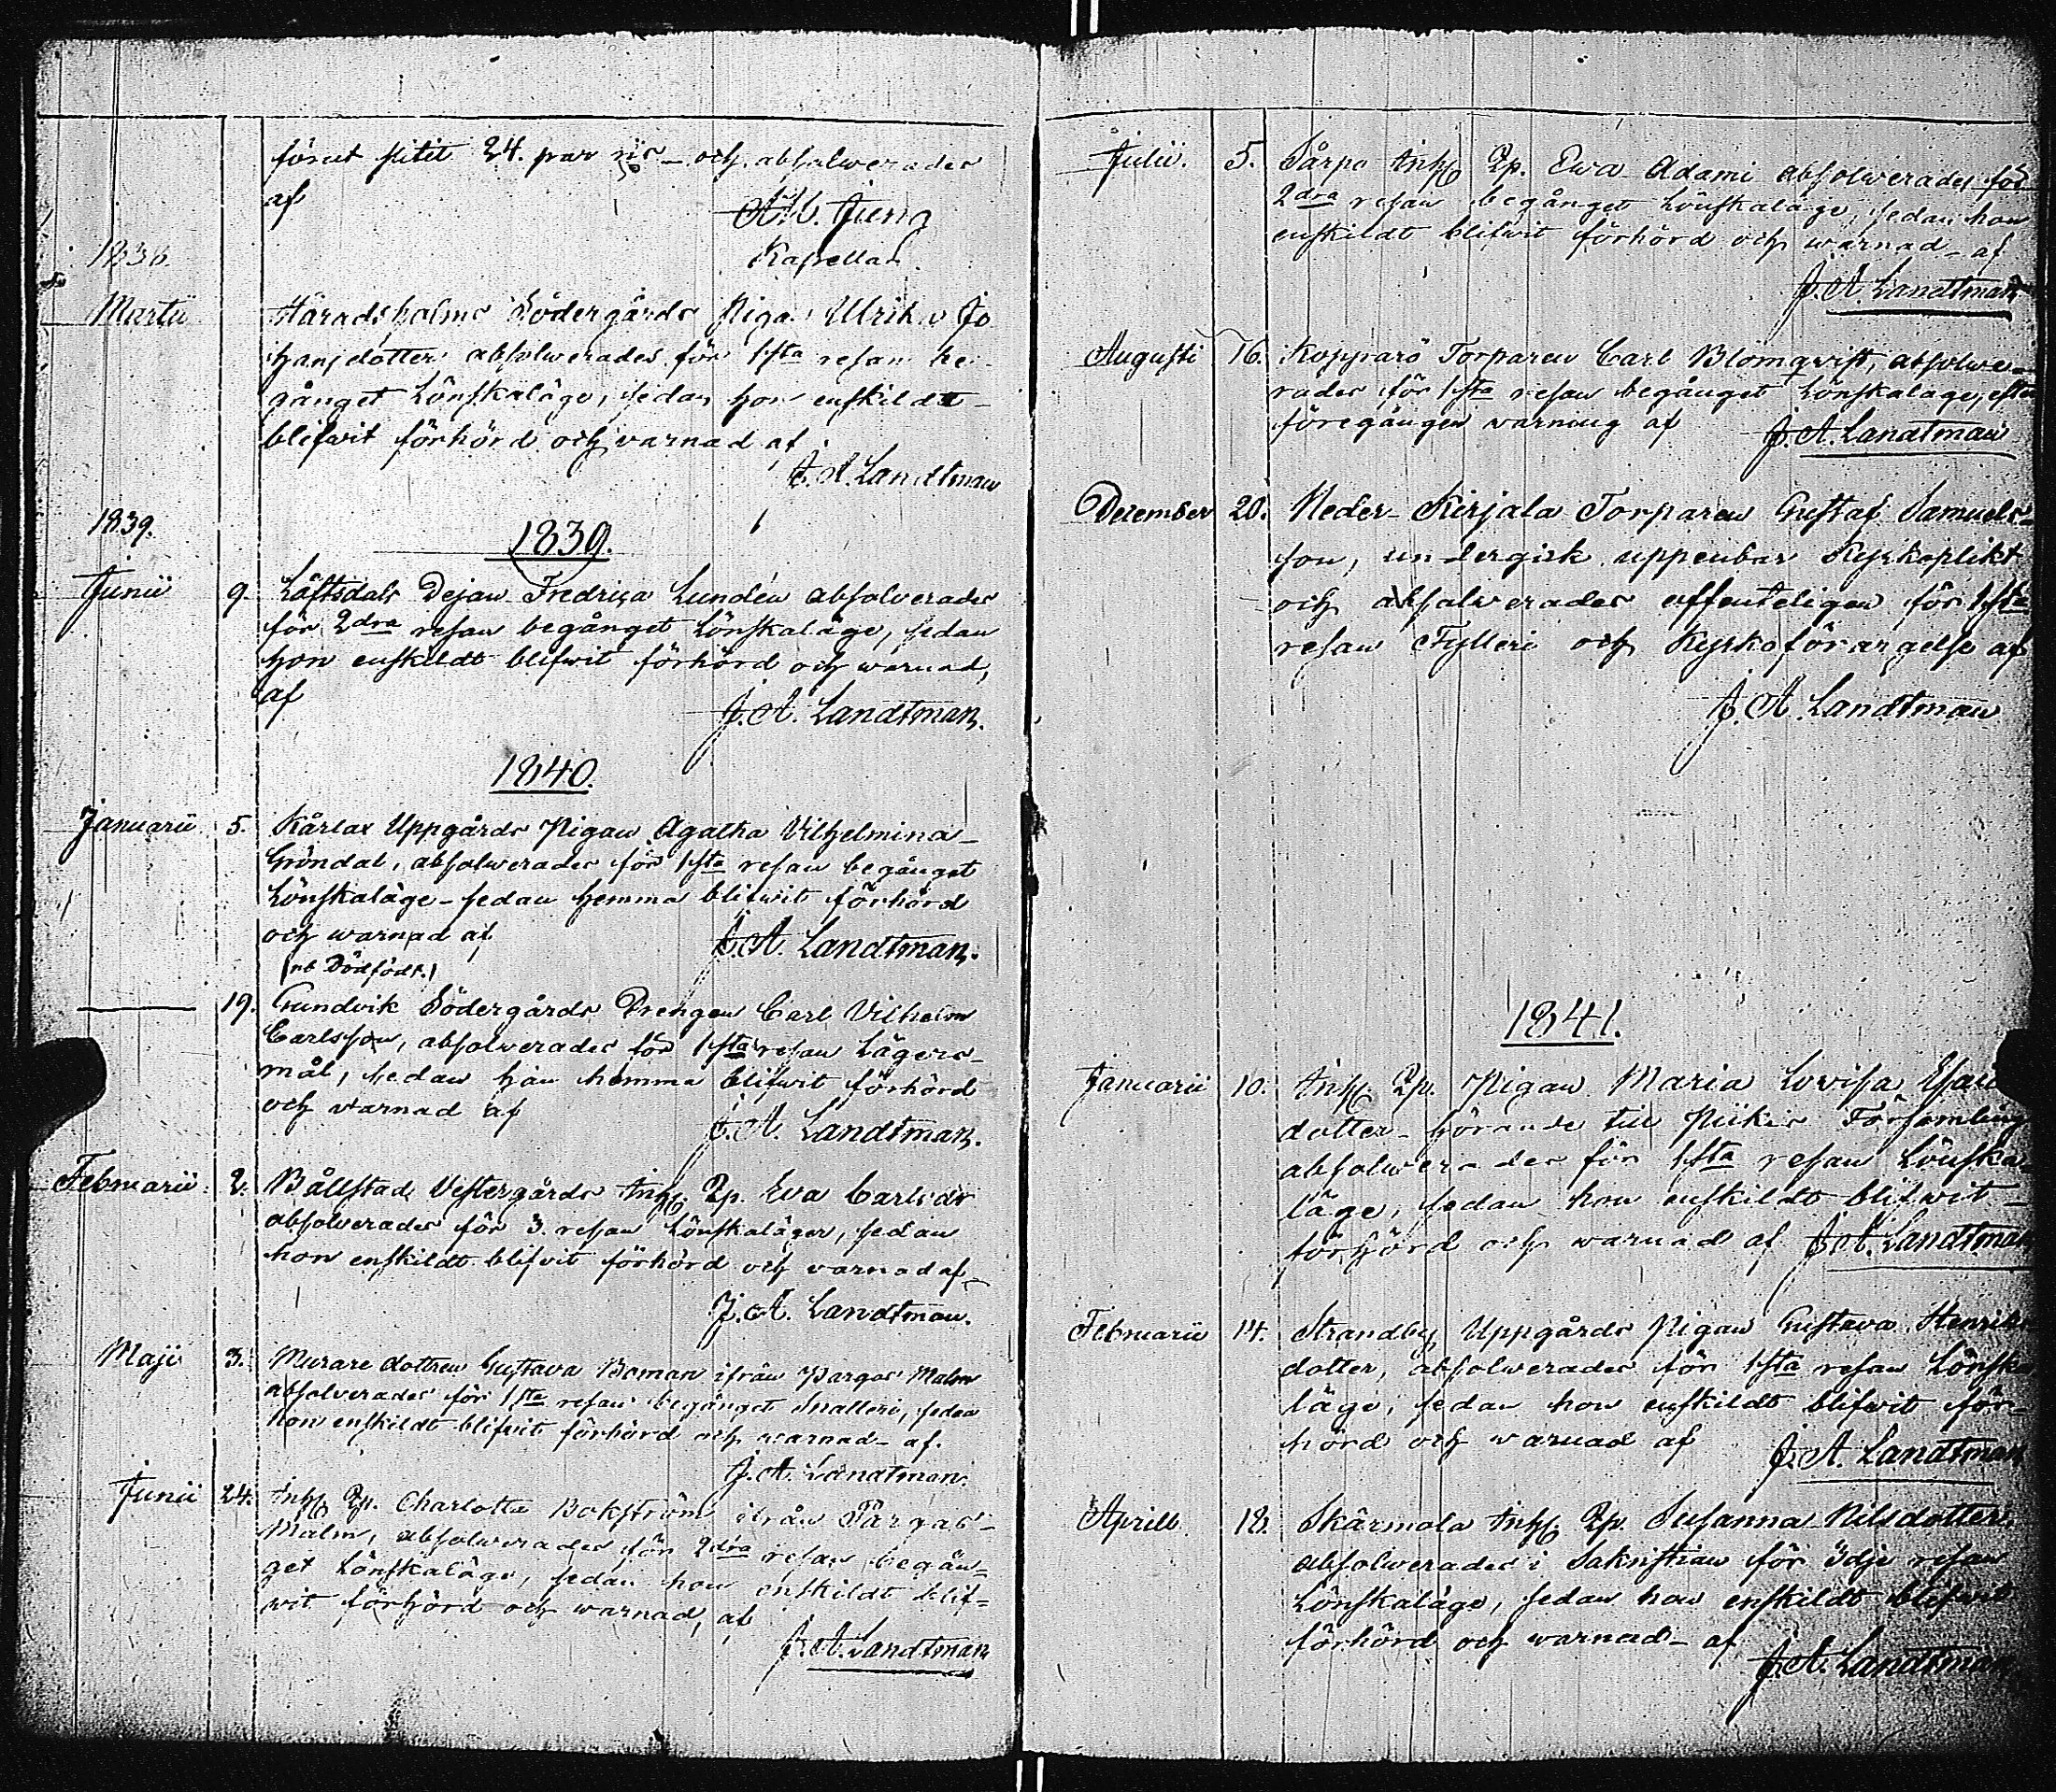 förut slitit 24. par ris _ och absolwerades
af
A. W. Jung
Kapellan.
1838.
Martii Häradsholms Södergårds Pigan Ulrika Jo
hansdotter absolwerades för 1sta resan be-
gånget Lönskaläge, sedan hon enskildt
blifwit förhörd och varnad af
J. A. Landtman
1839.
1839.
Junii 9. Löftsdals Dejan Fredrica Lundén absolverades
för 2dra resan begånget Lönskaläge, sedan
hon enskildt blifwit förhörd och warnad,
af
J. A. Landtman.
1840.
Januarii 5. Kårlax Uppgårds Pigan Agatha Vilhelmina
Gröndal, absolwerades för 1sta resan begånget
Lönskaläge _ sedan hemma blifwit förhörd
och warnad af
J. A. Landtman.
(nb Dödfödt.)
19. Gundvik Södergårds Drengen Carl Vilhelm
Carlsson, absolwerades för 1sta resan Lägers-
mål, sedan han hemma blifwit förhörd
och varnad af
J. A. Landtman.
Februarii 2. Bållstad Vestergårds Inhs Qp. Eva Carlsdr
absolverades för 3. resan Lönskaläger, sedan
hon enskildt blifvit förhörd och varnad af
J. A. Landtman.
Maji 3. Murare dottren Gustava Boman ifrån Pargas Malm
absolverades för 1sta resan begånget Snatteri, sedan
hon enskildt blifwit förhörd och warnad _ af.
J. A. Landtman.
Junii 24. Inhs Qp. Charlotta Bokström ifrån Pargas
Malm, absolwerades för 2dra resan begån=
get Lönskaläge, sedan hon enskildt blif=
wit förhörd och warnad, af
J. A. Landtman
Julii. 5. Sårpo Inhs Qp. Ewa Adami absolwerades för
2dra resan begånget Lönskaläge, sedan hon
enskildt blifwit förhörd och warnad _ af
J. A. Landtman
Augusti 16. Kopparö Torparen Carl Blomqvist, absolwe-
rades för 1sta resan begånget Lönskalage, efter
föregången warning af J. A. Landtman
December 20. Neder-Kirjala Torparen Gustaf Samuels-
son, undergick uppenbar Kyrkoplikt
och absolwerades offenteligen för 1sta
resan Fylleri och Kyrkoförargelse af
J. A. Landtman
1841.
Januarii 10. Inhs Qp. Pigan Maria Lovisa
dotter _ hörande till Piikis Församling
absolwerades för 1sta resan Lönska-
läge, sedan hon enskildt blifwit
förhörd och warnad af J. A. Landtman
Februarii 14. Strandby Uppgårds Pigan Gustava Henriks
dotter, absolwerades för 1sta resan Lönska
läge, sedan hon enskildt blifwit för-
hörd och warnad af J. A. Landtman
Aprill 18. Skärmola Inhs Qp. Susanna Nilsdotter
absolwerades i Sakristian för 3dje resan
Lönskaläge, sedan hon enskildt blifwit
förhörd och warnad _ af
J. A. Landtman